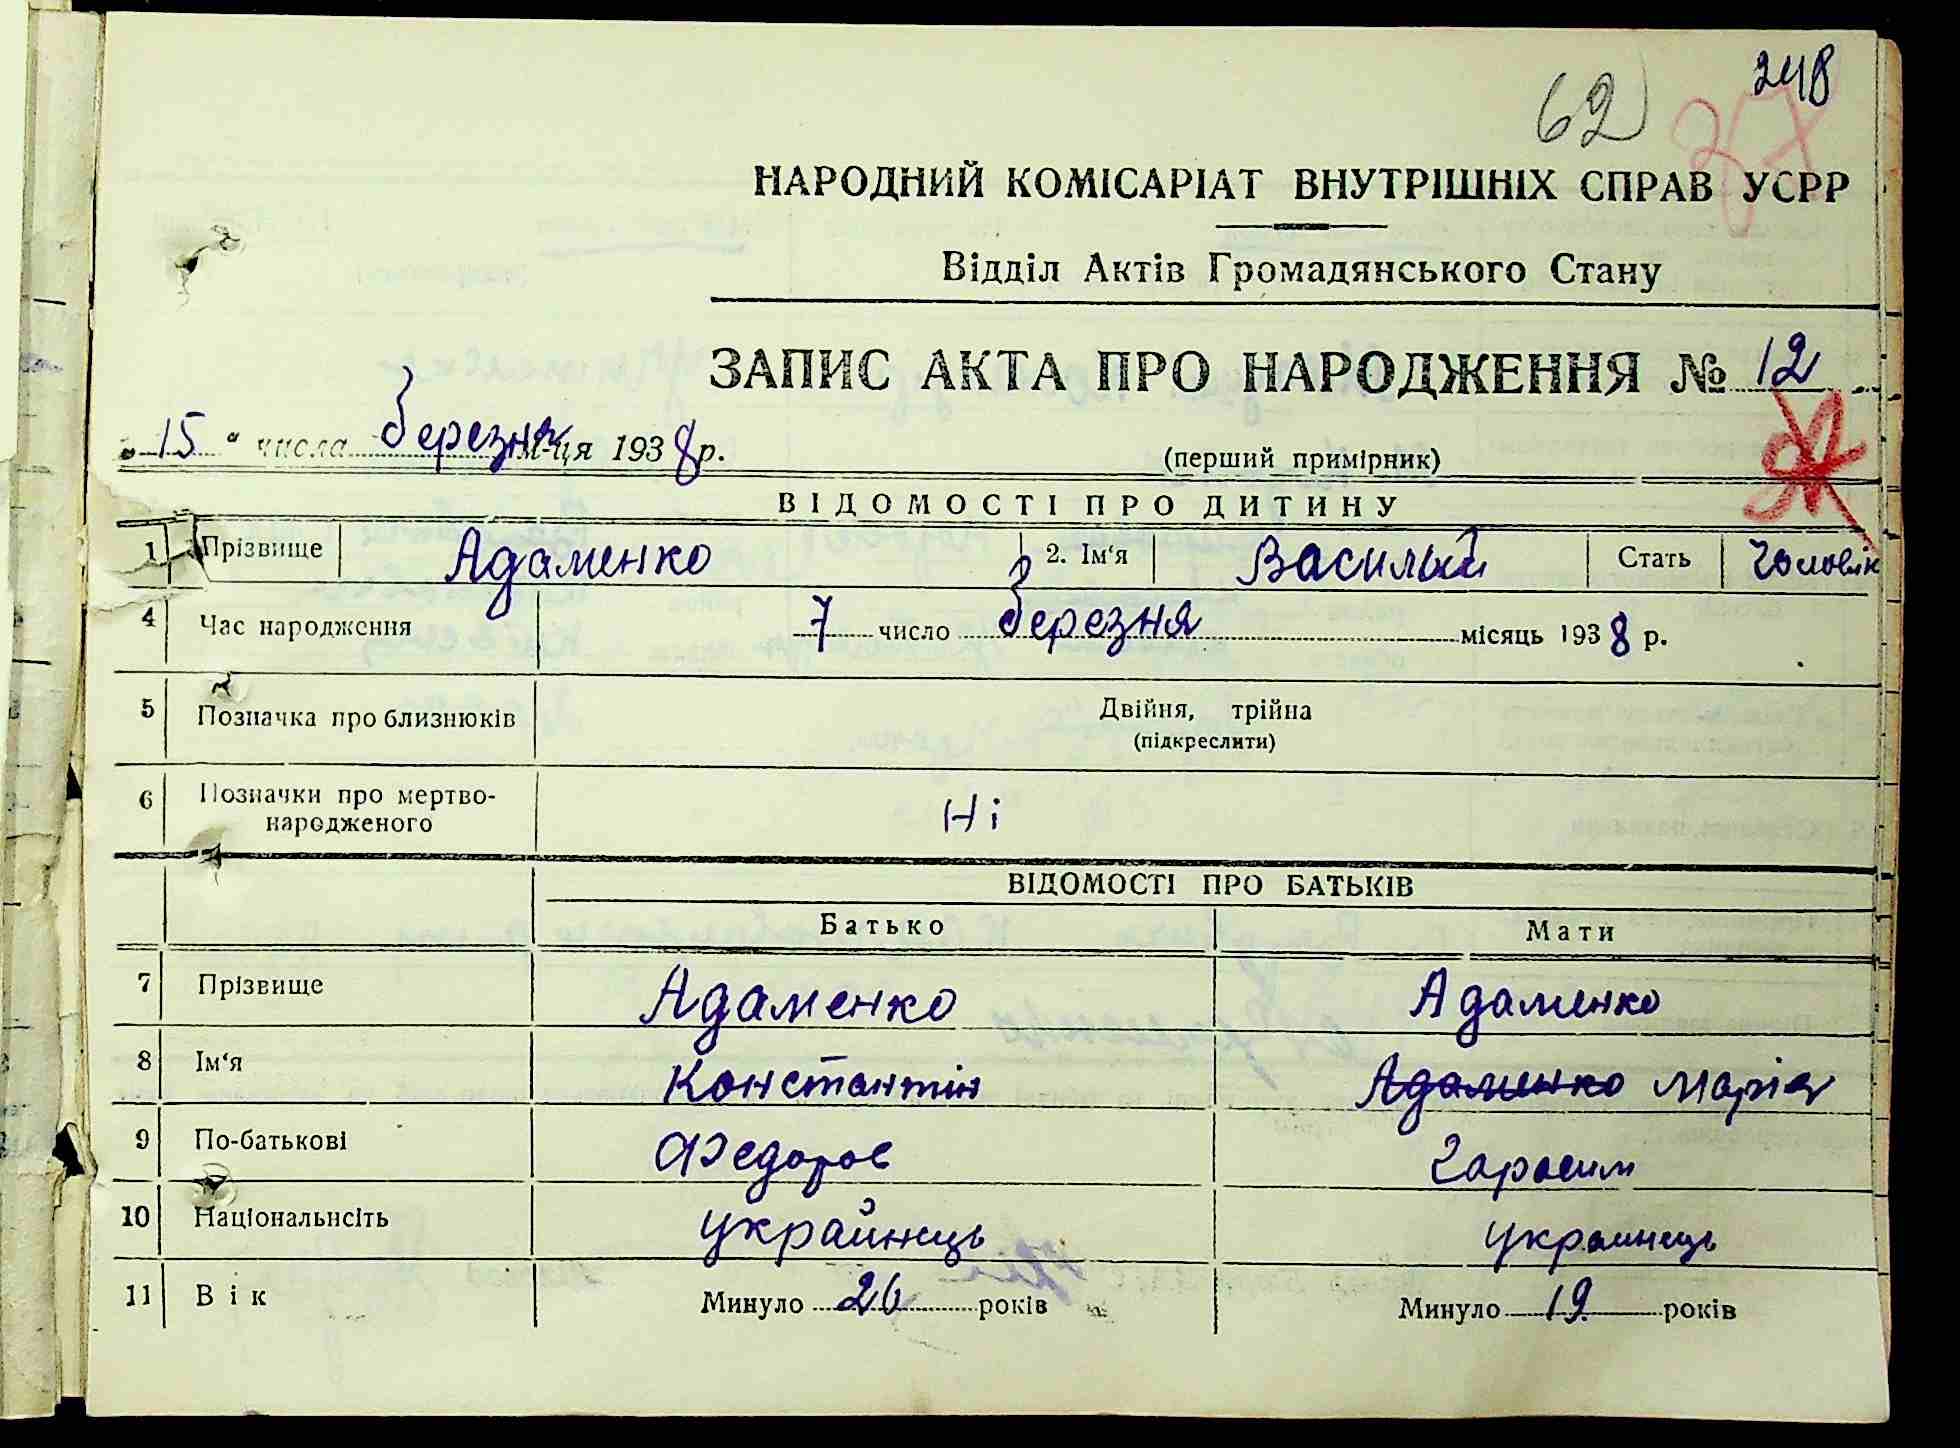 248
62
НАРОДНИЙ КОМІСАРІАТ ВНУТРІШНІХ СПРАВ УСРР
Відділ Актів Громадянського Стану
ЗАПИС АКТА ПРО НАРОДЖЕННЯ № 12
„15“ числа березня м-ця 1938 р.
(перший примірник)
ВІДОМОСТІ ПРО ДИТИНУ
1 Прізвище Адаменко 2. Ім'я Василий Стать Чоловік
4 Час народження 7 число березня місяць 1938 р.
5 Позначка про близнюків Двійня, трійна
(підкреслити)
6 Позначки про мертво-
народженого Ні
ВІДОМОСТІ ПРО БАТЬКІВ
Батько Мати
7 Прізвище Адаменко Адаменко
8 Ім'я Константін Адаменко Марія
9 По-батькові Федоров Гарасим
10 Національнсіть украйнець украинець
11 Вік Минуло 26 років Минуло 19 років